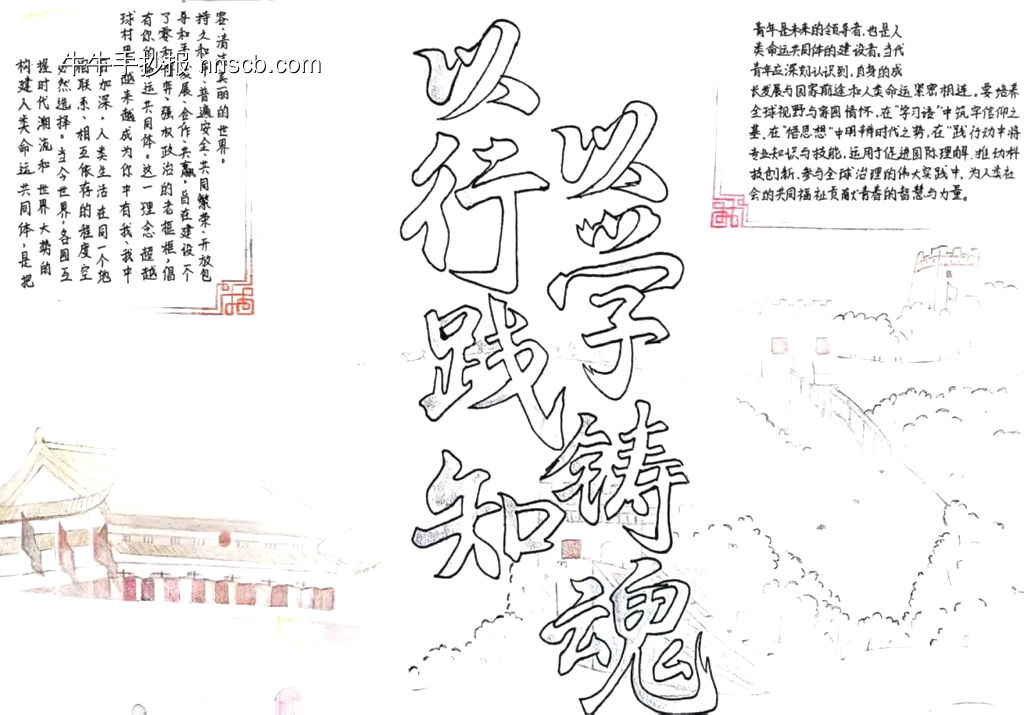 牛牛手抄报 nnscb.com
构建人类命运共同体，是把
握时代潮流和世界大势的
必然选择。当今世界，各国互
相联系、相互依存的程度空
前加深，人类生活在同一个地
球村里，越来越成为你中有我、我中
有你的命运共同体。这一理念超越
了零和博弈、强权政治的老框框，倡
导和平发展、合作共赢，旨在建设一个
持久和平、普遍安全、共同繁荣、开放包
容、清洁美丽的世界。
以学铸魂
以行践知
青年是未来的领导者，也是人
类命运共同体的建设者。当代
青年应深刻认识到，自身的成
长发展与国家前途和人类命运紧密相连。要培养
全球视野与家国情怀，在“学习语”中筑牢信仰之
基、在“悟思想”中明辨时代之势，在“践行动”中将
专业知识与技能，运用于促进国际理解、推动科
技创新、参与全球治理的伟大实践中，为人类社
会的共同福祉贡献青春的智慧与力量。